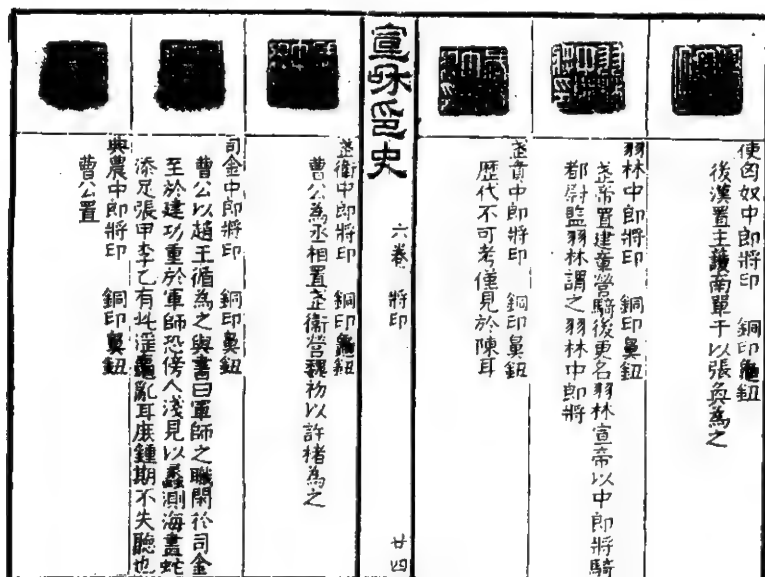 使匈奴中郎將印　銅印龜鈕
後漢置主護南單于以張奐為之
羽林中郎將印　銅印鼻鈕
武帝置建章營騎後更名羽林宣帝以中郎將騎
都尉監羽林謂之羽林中郎將
武賁中郎將印　銅印鼻鈕
歷代不可考僅見於陳耳
宣和印史
六卷　將印
廿四
武衛中郎將印　銅印龜鈕
曹公為丞相置武衛營魏初以許褚為之
司金中郎將印　銅印鼻鈕
曹公以趙王循為之與書曰軍師之職閑於司金
至於建功重於軍師恐傍人淺見以蠡測海畫蛇
添足張甲李乙有此淫亂耳庶鍾期不失聽也
典農中郎將印　銅印鼻鈕
曹公置